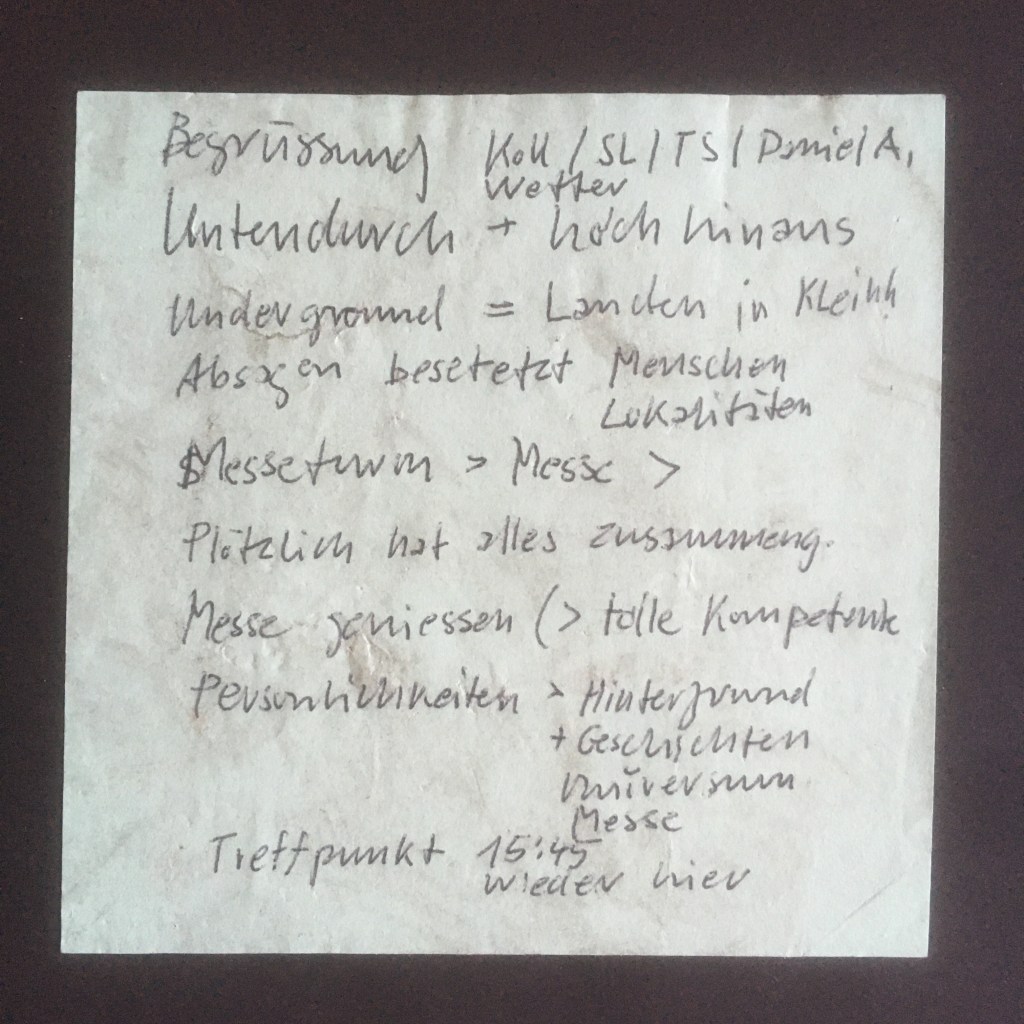 Begrüssung Koll / SL / TS / Daniel A,
Wetter
Untendurch + hoch hinaus
Underground = Landen in Kleinh
Absagen besetetzt Menschen
Lokalitäten
Messeturm > Messe >
Plötzlich hat alles zusammeng.
Messe geniessen (> tolle Kompetente
Persönlichkeiten > Hintergrund
+ Geschichten
Universum
Messe
Treffpunkt 15:45
wieder hier